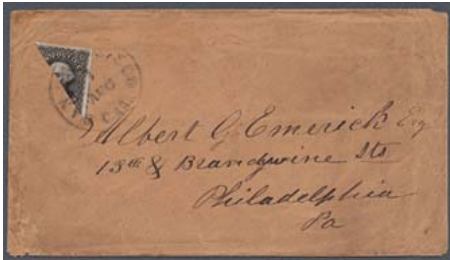 AUG
CAL.
Albert G. Emerick Esq
13th & Brandywine Sts
Philadelphia
Pa